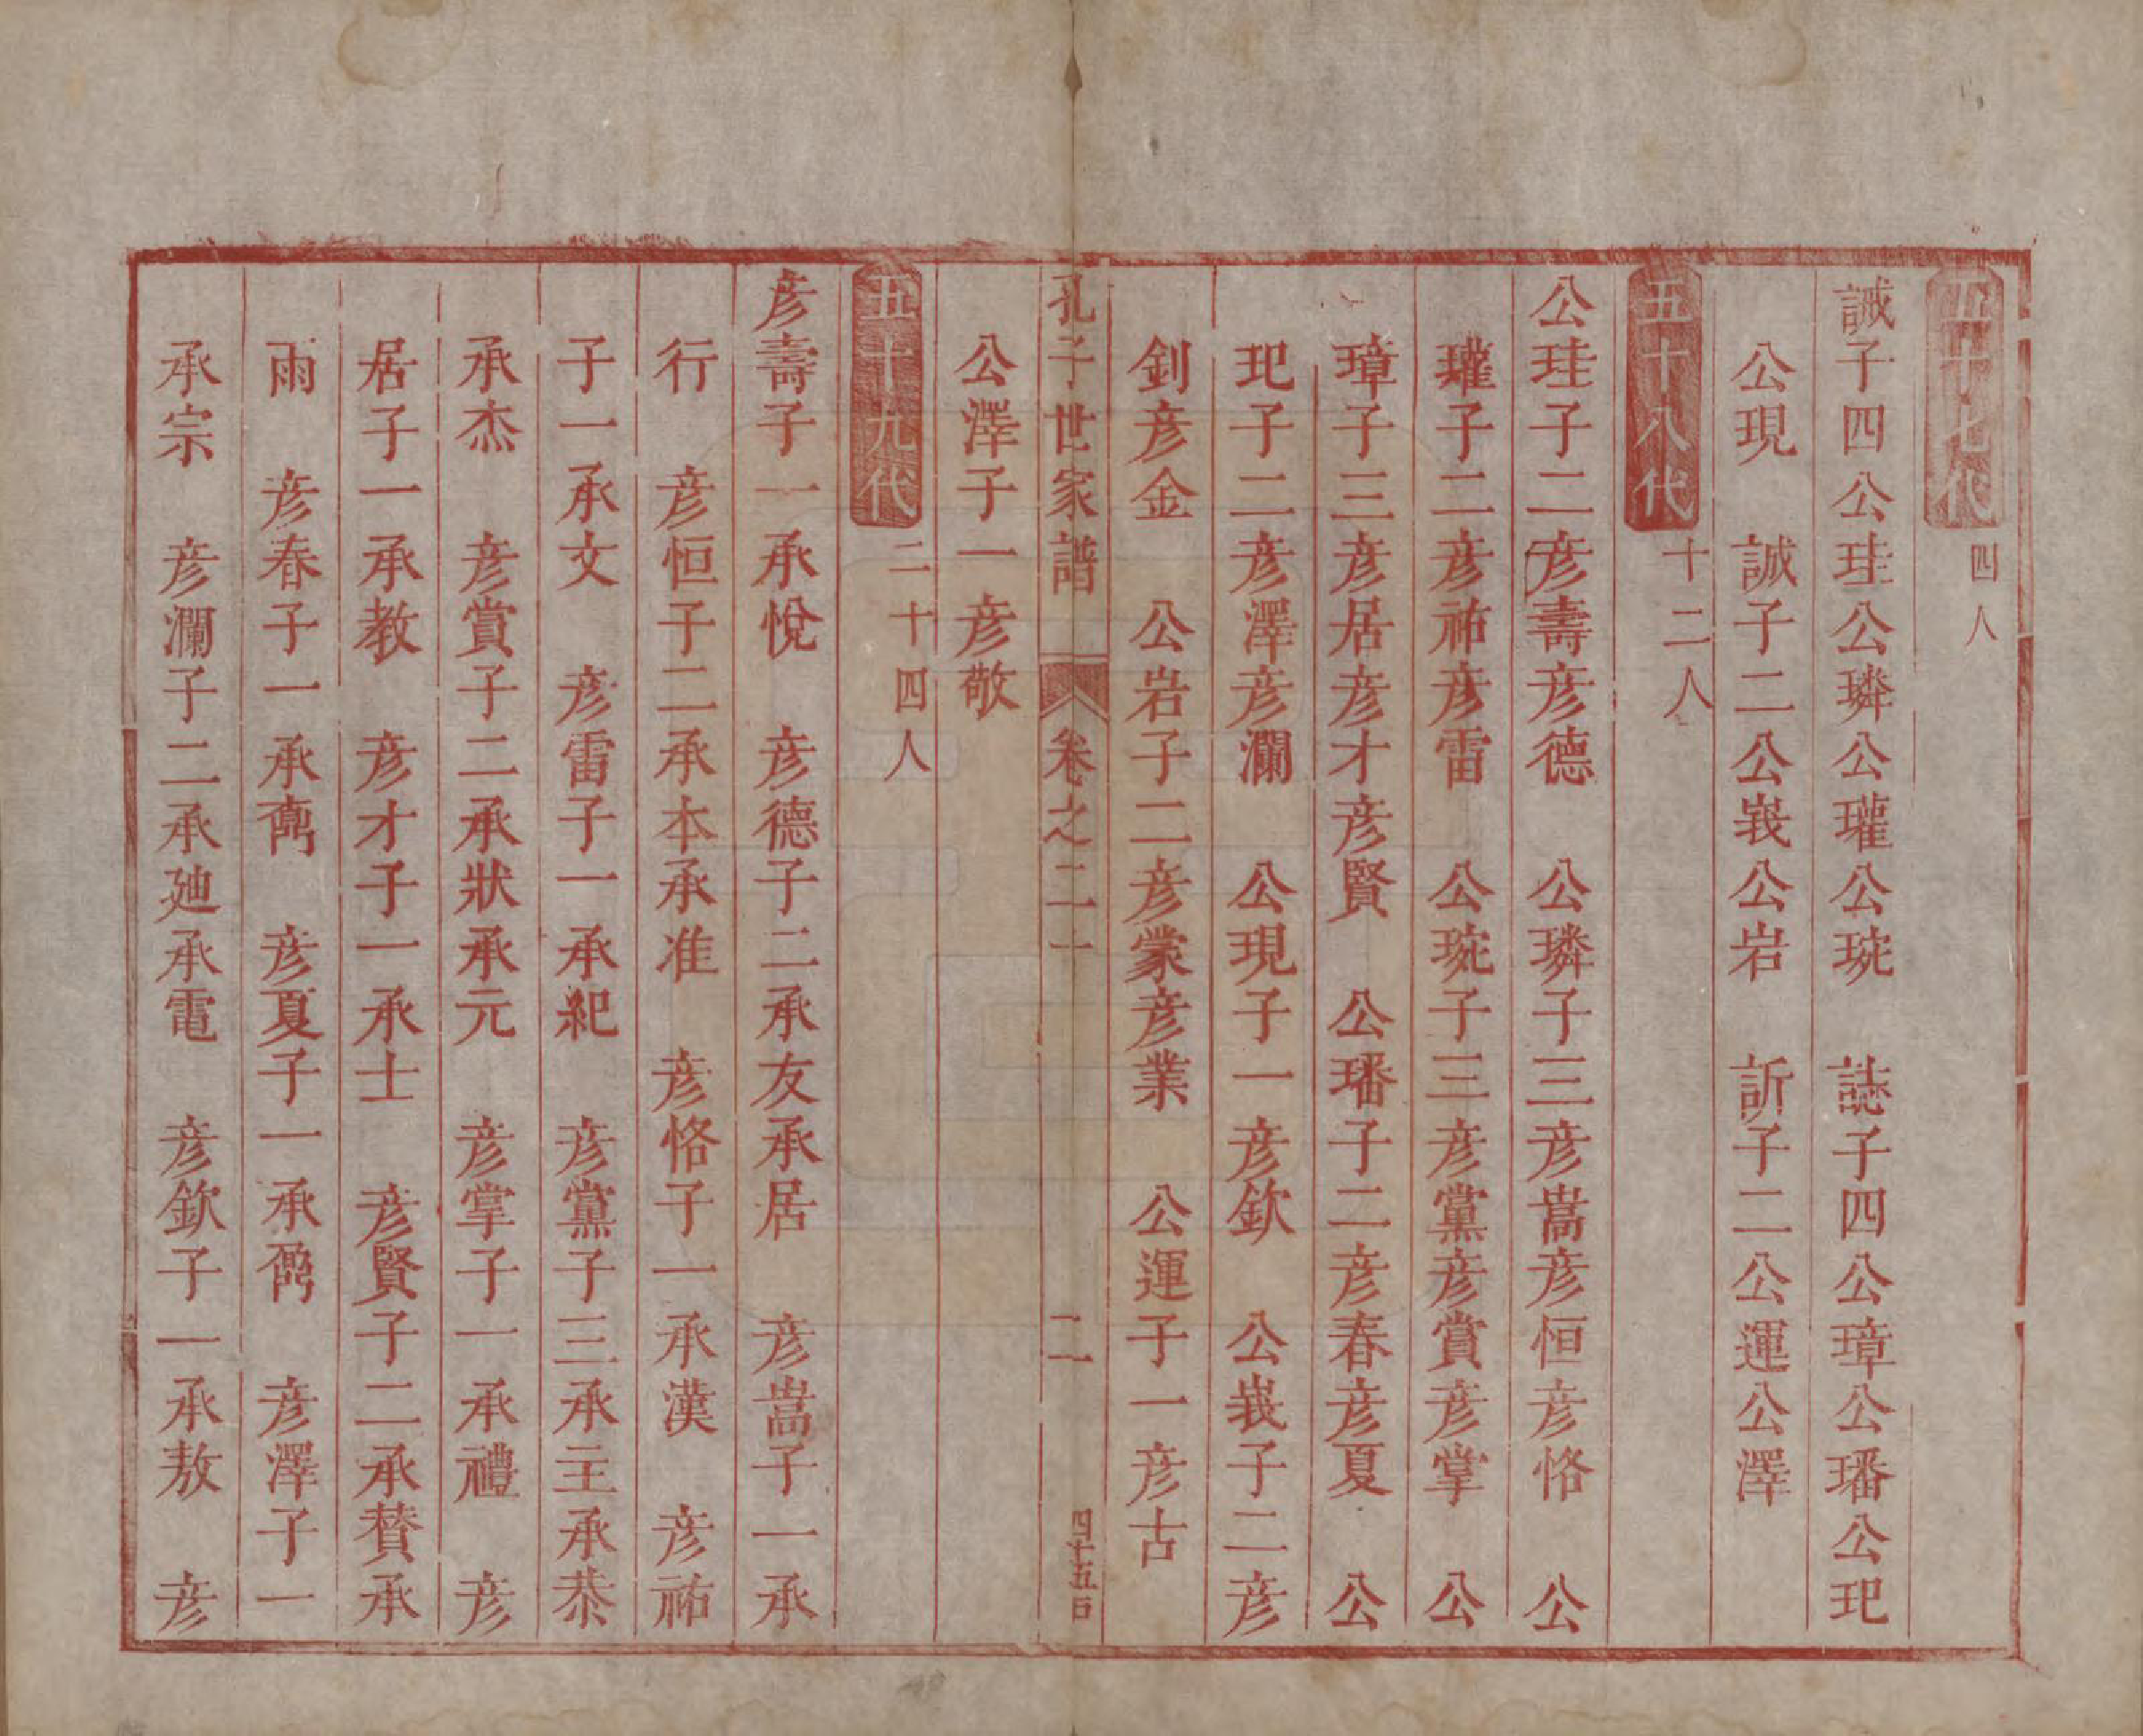 五十七代 四人
誠子四公珪公璘公瓘公琬 誌子四公璋公璠公玘
公現 誠子二公峩公岩 訢子二公運公澤
五十八代 十二人
公珪子二彥壽彥德 公璘子三彥嵩彥恒彥恪 公
瓘子二彥祐彥雷 公琬子三彥黨彥賞彥掌 公
璋子三彥居彥才彥賢 公璠子二彥春彥夏 公
玘子二彥澤彥瀾 公現子一彥欽 公峩子二彥
釗彥金 公岩子二彥蒙彥業 公運子一彥古
公澤子一彥敬
孔子世家譜 卷之二十 二 四十五石
五十九代 二十四人
彥壽子一承悅 彥德子二承友承居 彥嵩子一承
行 彥恒子二承本承准 彥恪子一承漢 彥祐
子一承文 彥雷子一承紀 彥黨子三承主承恭
承杰 彥賞子二承狀承元 彥掌子一承禮 彥
居子一承教 彥才子一承士 彥賢子二承贊承
雨 彥春子一承 彥夏子一承 彥澤子一
承宗 彥瀾子二承廸承電 彥欽子一承敖 彥